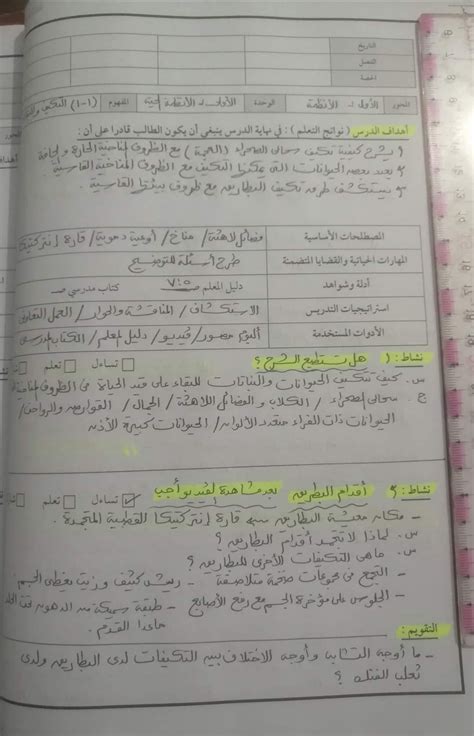 التاريخ
الفصل
الحصة
المحور الأول - الأنظمة الوحدة الأولى - الأنظمة الحية المفهوم (1-1) التكيف
أهداف الدرس ( نواتج التعلم ) : في نهاية الدرس ينبغي أن يكون الطالب قادرا على أن :
1 يشرح كيفية تكيف سحالى الصحراء مع الظروف المناخية الحارة والجافة
2 يعدد بعض الحيوانات التى يمكنها التكيف مع الظروف المناخية القاسية
3 يستكشف طرق تكيف البطاريق مع ظروف بيئتها القاسية .
المصطلحات الأساسية فصائل لاهثة / مناخ / أوعية دموية / قارة إنتركتيكا
المهارات الحياتية والقضايا المتضمنة طرح أسئلة للتوضيح
أدلة وشواهد دليل المعلم صـ كتاب مدرسي صـ
استراتيجيات التدريس الاستكشاف / المناقشة والحوار / العمل التعاونى
الأدوات المستخدمة ألبوم مصور / فيديو / دليل المعلم / الكتاب المدرسى
نشاط : 1 هل تستطيع الشرح ؟ تساءل تعلم
س. كيف تتكيف الحيوانات والنباتات للبقاء على قيد الحياة فى الظروف
ج. سحالى الصحراء / الكلاب والفصائل اللاهثة / الجمال / القوارض والزواحف /
الحيوانات ذات الفراء متعدد الألوان / الحيوانات كبيرة الأذن
نشاط : 2 أقدام البطريق بعد مشاهدة الفيديو أجب تساءل تعلم
- مكان معيشة البطاريق قارة إنتركتيكا القطبية المتجمدة .
س. لماذا لا تتجمد أقدام البطاريق ؟
س. ماهى التكيفات الأخرى للبطاريق ؟
- التجمع فى مجموعات ضخمة متلاصقة - ريش كثيف وزيت يغطى الجسم
- الجلوس على مؤخرة الجسم مع رفع الأصابع - طبقة سميكة من الدهون تحت الجلد
ماعدا القدم .
التقويم :
- ما أوجه التشابه وأوجه الاختلاف بين التكيفات لدى البطاريق ولدى
ثعلب الفنك ؟